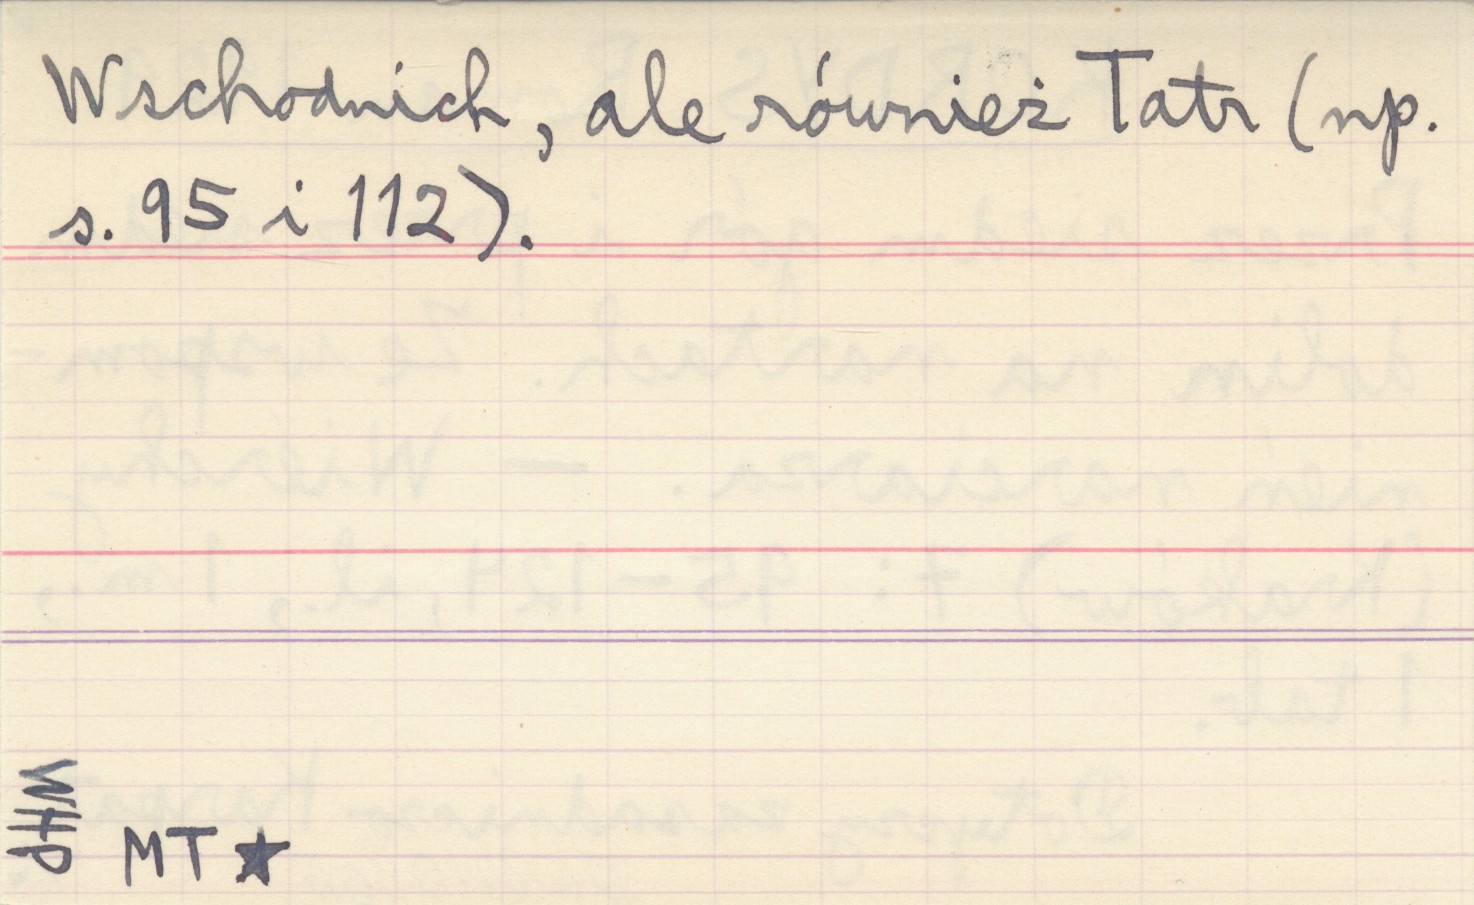 Wschodnich, ale również Tatr (np.
s. 95 i 112).
WHP
MT ★